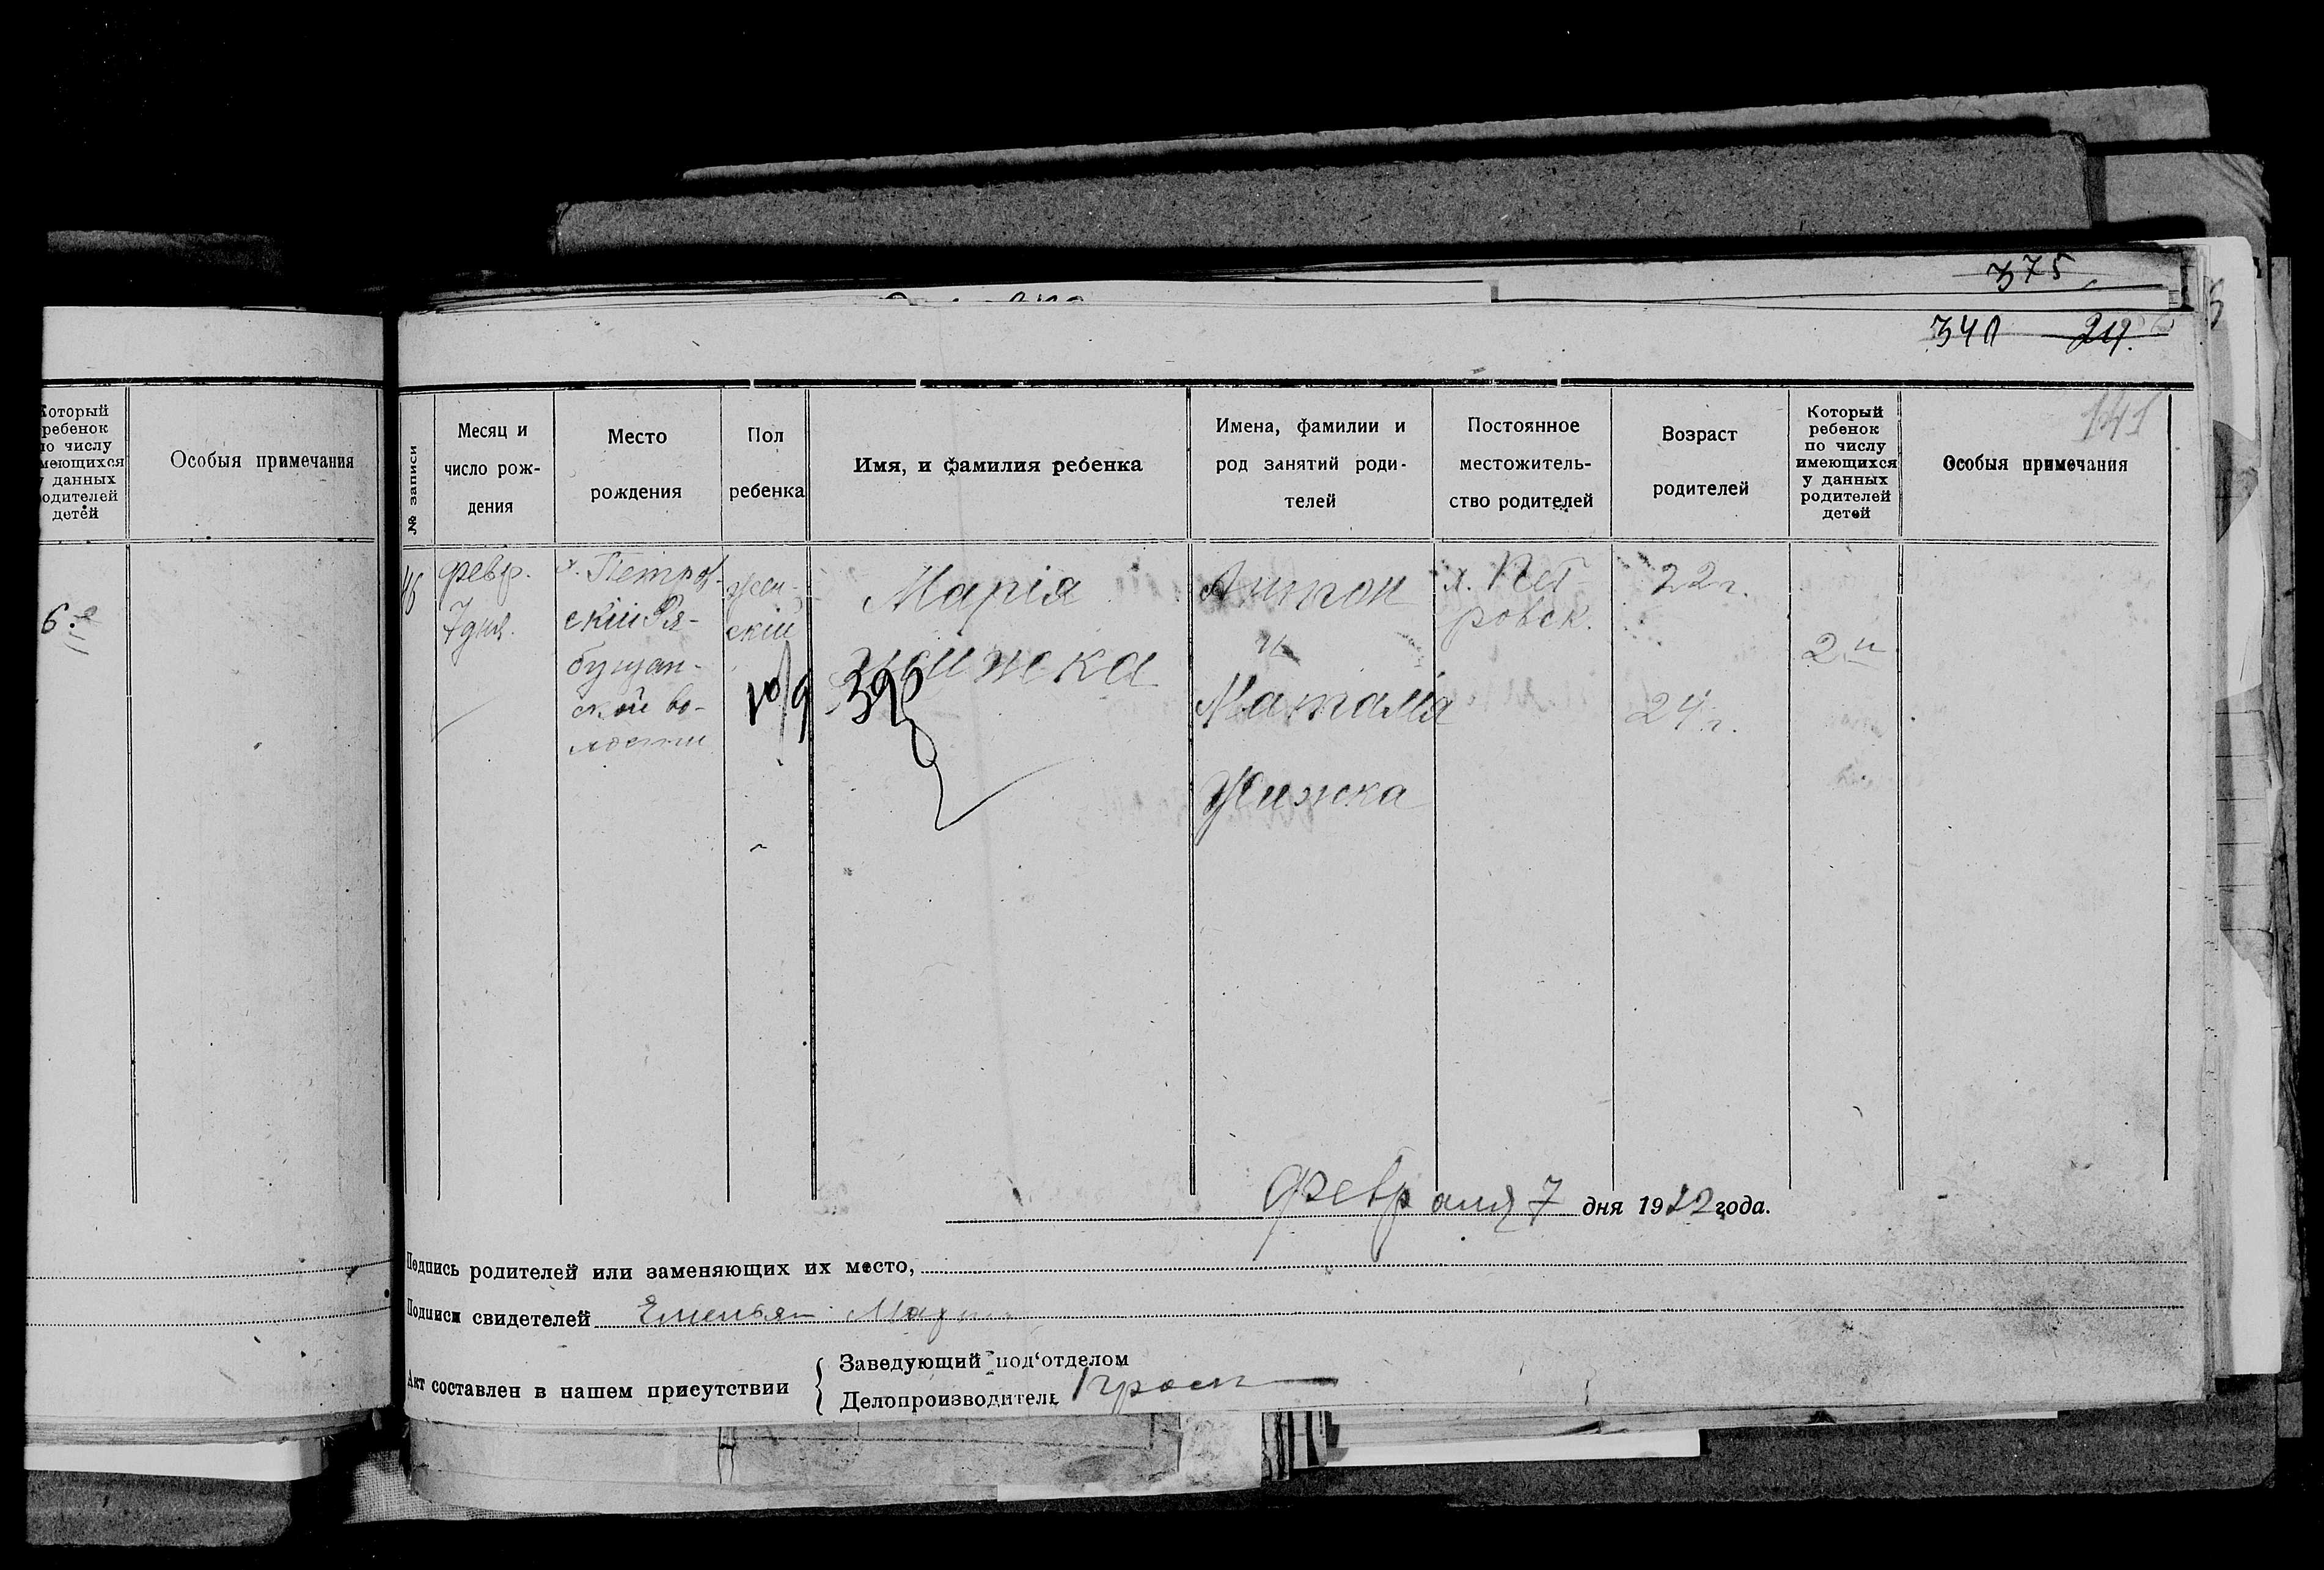 375
340
24.
141
Который
ребенок
по числу
имеющихся
у данных
родителей
детей
Особыя примечания
6.й
№ записи
Месяц и
число рож-
дения
Место
рождения
Пол
ребенка
Имя, и фамилия ребенка
Имена, фамилии и
род занятий роди-
телей
Постоянное
местожитель-
ство родителей
Возраст
родителей
Который
ребенок
по числу
имеющихся
у данных
родителей
детей
Особыя примечания
46
февр.
7 дня.
х. Петров-
скій Ря-
бушан-
ской во-
лости
жен-
скій
10/9
Марія
398
Антон
и
Наталія
х. Пет-
ровск.
22 г.
24 г.
2й
Февраля 7 дня 1922 года.
Подпись родителей или заменяющих их место,
Подписи свидетелей Емельян
Акт составлен в нашем присутствии
Заведующий под‘отделом
Делопроизводитель